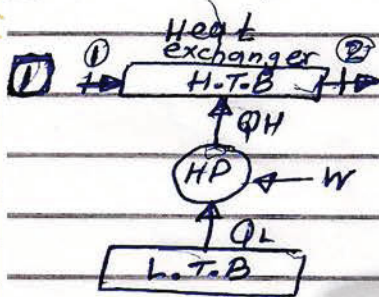 Heat
exchanger
1 ① H.T.B ②
QH
HP W
QL
L.T.B